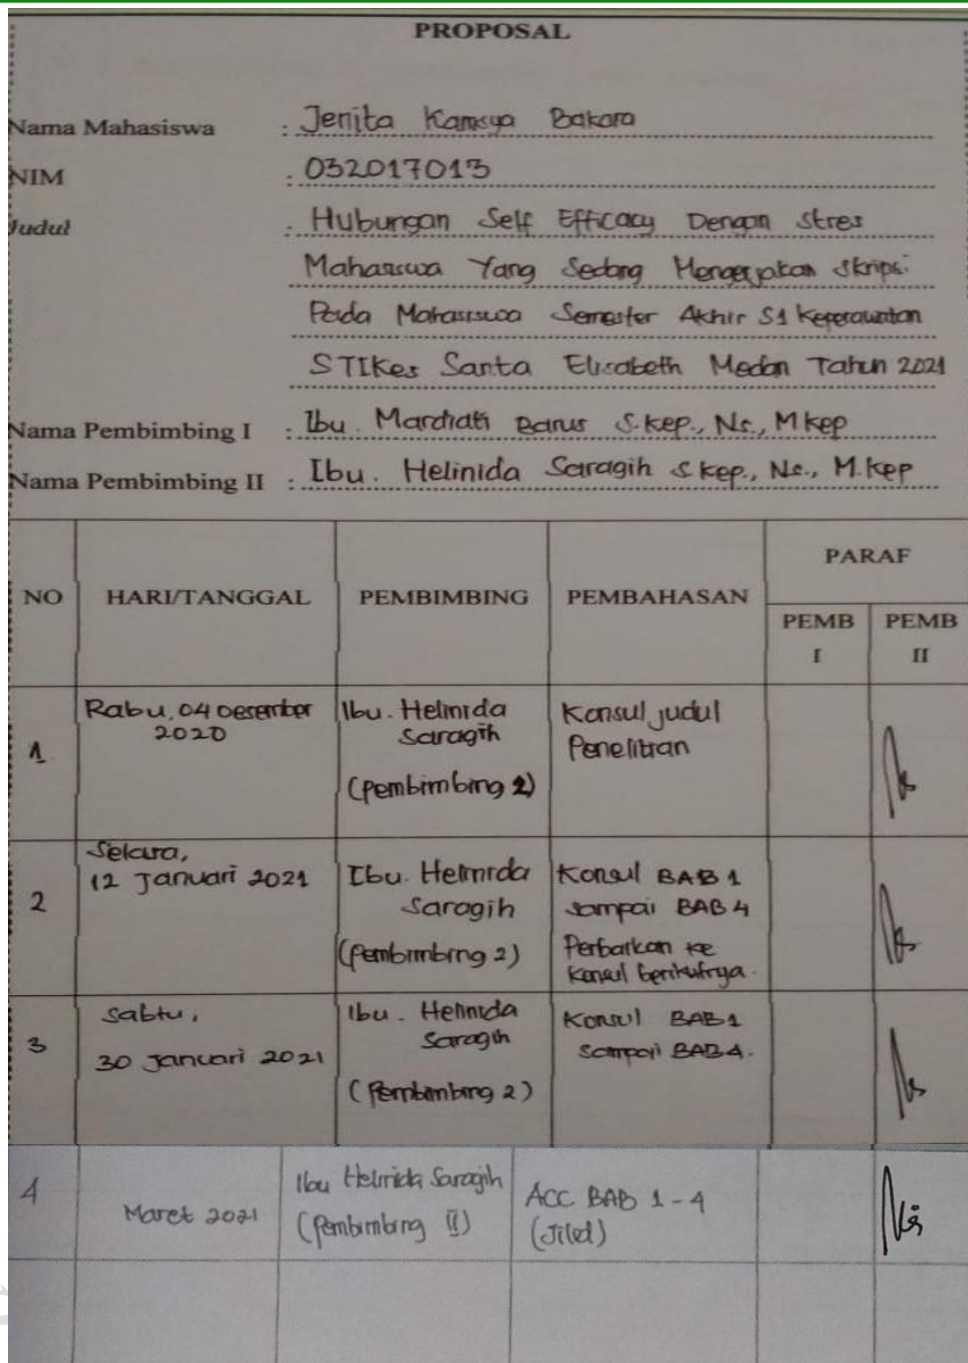 PROPOSAL
Nama Mahasiswa : Jenita Kamsya Bakara
NIM : 032017013
Judul : Hubungan Self Efficacy Dengan Stres
Mahasiswa Yang Sedang Mengerjakan Skripsi
Pada Mahasiswa Semester Akhir S1 Keperawatan
STIKes Santa Elisabeth Medan Tahun 2021
Nama Pembimbing I : Ibu. Mardiati Barus S.kep., Ns., M.Kep
Nama Pembimbing II : Ibu. Helinida Saragih S.kep., Ns., M.Kep
NO HARI/TANGGAL PEMBIMBING PEMBAHASAN PARAF
PEMB I PEMB II
1 Rabu, 04 Desember 2020 Ibu. Helinida Saragih (Pembimbing 2) Konsul judul Penelitian
2 Selasa, 12 Januari 2021 Ibu. Helinida Saragih (Pembimbing 2) Konsul BAB 1 sampai BAB 4 Perbaikan ke konsul berikutnya.
3 Sabtu, 30 Januari 2021 Ibu. Helinida Saragih (Pembimbing 2) Konsul BAB 1 sampai BAB 4.
4 Maret 2021 Ibu Helinida Saragih (Pembimbing II) ACC BAB 1 - 4 (Jilid)